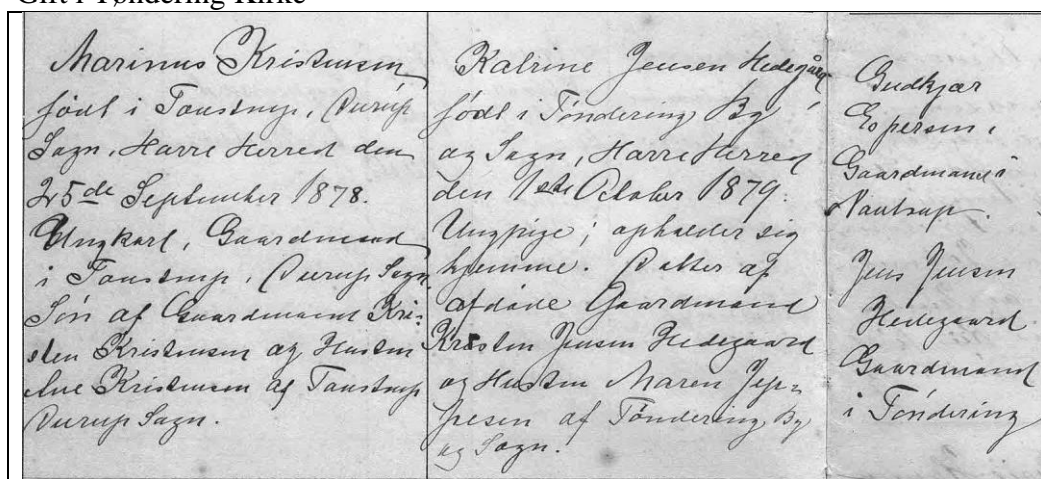 Gift i Tøndering Kirke
Marinus Kristensen
født i Taustrup, Durup
Sogn, Harre Herred den
25de September 1878.
Ungkarl, Gaardmand
i Taustrup, Durup Sogn
Søn af Gaardmand Kri-
sten Kristensen og Hustru
Ane Kristensen af Taustrup
Durup Sogn.
Katrine Jensen Hedegård
født i Tøndering By
og Sogn, Harre Herred
den 1ste October 1879.
Ungpige; opholder sig
hjemme. Datter af
afdøde Gaardmand
Kristen Jensen Hedegaard
og Hustru Maren Jep-
pesen af Tøndering By
og Sogn.
Gudkjær
Espersen,
Gaardmand i
Nautrup.
Jens Jensen
Hedegaard
Gaardmand
i Tøndering